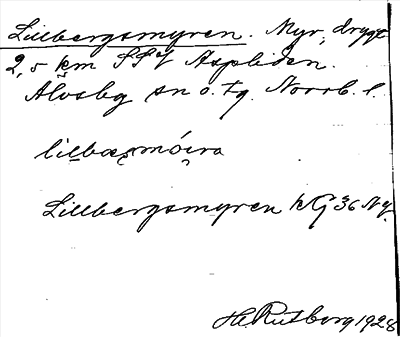 Lillbergsmyren. Myr, drygt
2,5 km SSV Aspliden.
Älvsby sn o. tg. Norrb. l.
Lillbergsmyren kG 36 Ny.
H. Rutberg 1928